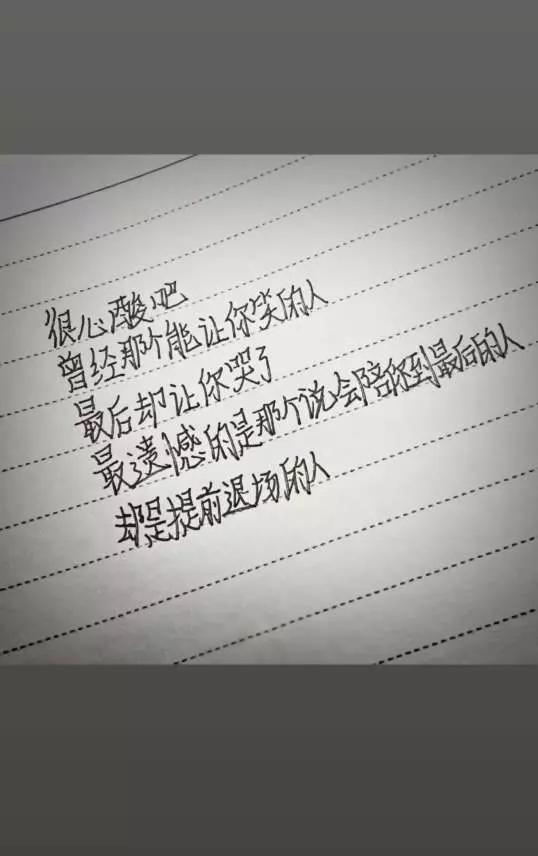 很心酸吧
曾经那个能让你笑的人
最后却让你哭了
最遗憾的是那个说会陪你到最后的人
却是提前退场的人